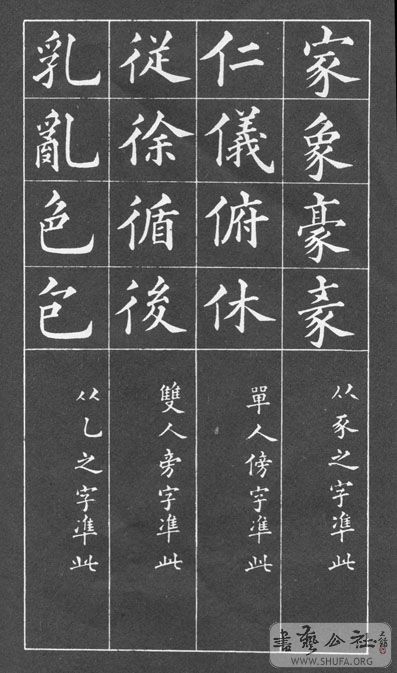 家象豪
从豕之字準此
仁儀俯休
單人傍字準此
從徐循後
雙人旁字準此
乳亂色包
从乙之字準此
書藝公社
WWW.SHUFA.ORG